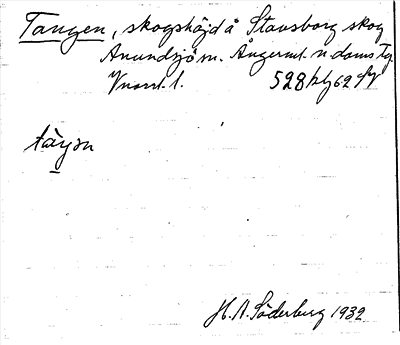 Tangen, skogshöjd å Stavsborg skog
Anundsjö sn. Ångerml. n. doms Tg
Vnorrl. l. 528
tàŋən
H. A. Söderberg 1932